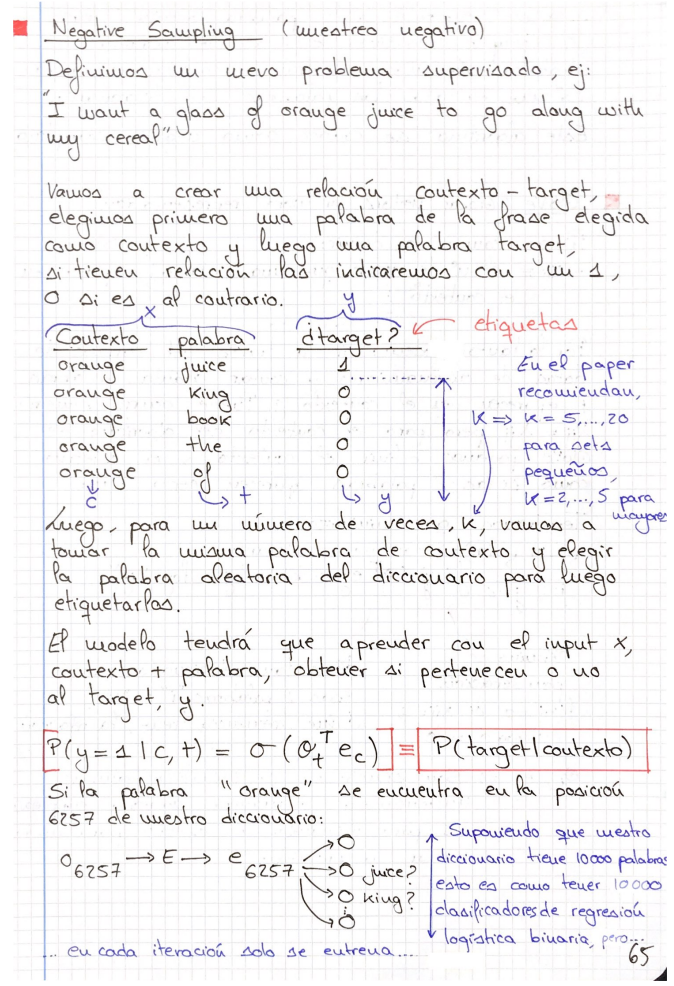 Negative Sampling (muestreo negativo)
Definimos un nuevo problema supervisado, ej:
"I want a glass of orange juice to go along with
my cereal"
Vamos a crear una relación contexto-target,
elegimos primero una palabra de la frase elegida
como contexto y luego una palabra target,
si tienen relación las indicaremos con un 1,
0 si es al contrario.
x y
Contexto palabra ¿target? ← etiquetas
orange juice 1
orange king 0
orange book 0
orange the 0
orange of 0
c t y
En el paper
recomiendan,
K ⇒ K = 5,...,20
para sets
pequeños,
K=2,...,5 para
mayores
Luego, para un número de veces, K, vamos a
tomar la misma palabra de contexto y elegir
la palabra aleatoria del diccionario para luego
etiquetarlas.
El modelo tendrá que aprender con el input x,
contexto + palabra, obtener si pertenecen o no
al target, y.
P(y=1|c,t) = σ(θ_t^T e_c) ≡ P(target|contexto)
Si la palabra "orange" se encuentra en la posición
6257 de nuestro diccionario:
o_6257 → E → e_6257
juice?
king?
Suponiendo que nuestro
diccionario tiene 10000 palabras
esto es como tener 10000
clasificadores de regresión
logística binaria, pero...
... en cada iteración solo se entrena...
65